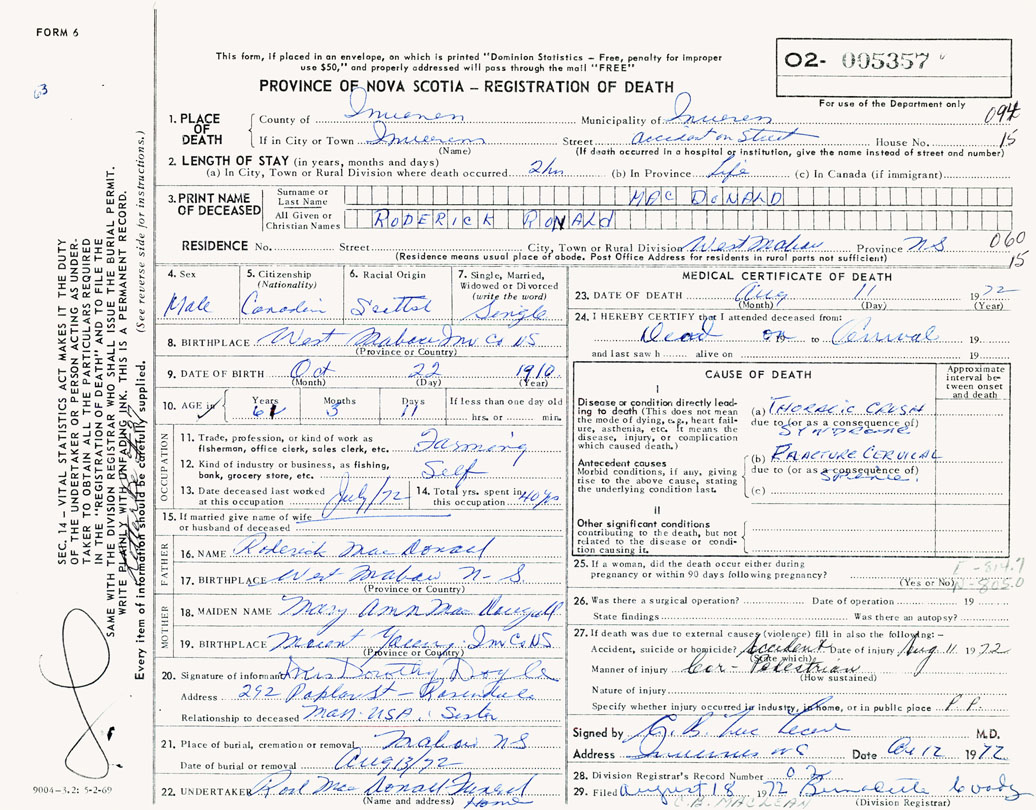 FORM 6
This form, if placed in an envelope, on which is printed "Dominion Statistics – Free, penalty for improper
use $50," and properly addressed will pass through the mail "FREE"
02- 005357
For use of the Department only
PROVINCE OF NOVA SCOTIA – REGISTRATION OF DEATH
63
094
1. PLACE OF DEATH
County of Inverness Municipality of Inverness
If in City or Town Inverness Street accident on Street House No. 15
(Name) (If death occurred in a hospital or institution, give the name instead of street and number)
2. LENGTH OF STAY (in years, months and days)
(a) In City, Town or Rural Division where death occurred 2 hrs (b) In Province Life (c) In Canada (if immigrant)
3. PRINT NAME OF DECEASED
Surname or Last Name MAC DONALD
All Given or Christian Names RODERICK RONALD
RESIDENCE No. Street City, Town or Rural Division West Mabou Province NS 060
(Residence means usual place of abode. Post Office Address for residents in rural parts not sufficient) 15
4. Sex Male
5. Citizenship (Nationality) Canadian
6. Racial Origin Scottish
7. Single, Married, Widowed or Divorced (write the word) Single
8. BIRTHPLACE West Mabou Inv Co NS
(Province or Country)
9. DATE OF BIRTH Oct 22 1910
(Month) (Day) (Year)
10. AGE in Years 61 Months 3 Days 11 If less than one day old
hrs. or min.
OCCUPATION
11. Trade, profession, or kind of work as fisherman, office clerk, sales clerk, etc. Farming
12. Kind of industry or business, as fishing, bank, grocery store, etc. Self
13. Date deceased last worked at this occupation July/72 14. Total yrs. spent in this occupation 40 yrs
15. If married give name of wife or husband of deceased
FATHER
16. NAME Roderick Mac Donald
17. BIRTHPLACE West Mabou N-S.
(Province or Country)
MOTHER
18. MAIDEN NAME Mary Ann Mac Dougall
19. BIRTHPLACE Mount Young Inv Co NS.
(Province or Country)
20. Signature of informant Mrs Dorothy Doyle
Address 292 Poplar St – Roslindale
Relationship to deceased Mass. USA. Sister
21. Place of burial, cremation or removal Mabou NS
Date of burial or removal Aug 13/72
22. UNDERTAKER Rod Mac Donald Funeral Home
(Name and address)
MEDICAL CERTIFICATE OF DEATH
23. DATE OF DEATH Aug 11 1972
(Month) (Day) (Year)
24. I HEREBY CERTIFY that I attended deceased from:
Dead on to Arrival 19
and last saw h alive on 19
CAUSE OF DEATH
Approximate interval between onset and death
I
Disease or condition directly leading to death (This does not mean the mode of dying, e.g., heart failure, asthenia, etc. It means the disease, injury, or complication which caused death.)
(a) THORACIC CRUSH
due to (or as a consequence of)
SYNDROME
Antecedent causes
Morbid conditions, if any, giving rise to the above cause, stating the underlying condition last.
(b) FRACTURE CERVICAL
due to (or as a consequence of)
(c)
II
Other significant conditions
contributing to the death, but not related to the disease or condition causing it.
25. If a woman, did the death occur either during pregnancy or within 90 days following pregnancy?
(Yes or No)
E-814.7
N-805.0
26. Was there a surgical operation? Date of operation 19
State findings Was there an autopsy?
27. If death was due to external causes (violence) fill in also the following:–
Accident, suicide or homicide? Accident Date of injury Aug 11. 1972
(State which)
Manner of injury Car - Pedestrian
(How sustained)
Nature of injury
Specify whether injury occurred in industry, in home, or in public place P.P.
Signed by M.D.
Address Inverness NS Date 12 1972
28. Division Registrar's Record Number
29. Filed August 18 1972 Bernadette
(Division Registrar)
C.B. MACLEAN
SEC. 14 – VITAL STATISTICS ACT MAKES IT THE DUTY
OF THE UNDERTAKER OR PERSON ACTING AS UNDER-
TAKER TO OBTAIN ALL THE PARTICULARS REQUIRED
IN THE "REGISTRATION OF DEATH" AND TO FILE THE
SAME WITH THE DIVISION REGISTRAR WHO SHALL ISSUE THE BURIAL PERMIT.
WRITE PLAINLY WITH UNFADING INK. THIS IS A PERMANENT RECORD.
Every item of information should be carefully supplied. (See reverse side for instructions.)
9004-3.2: 5-2-69